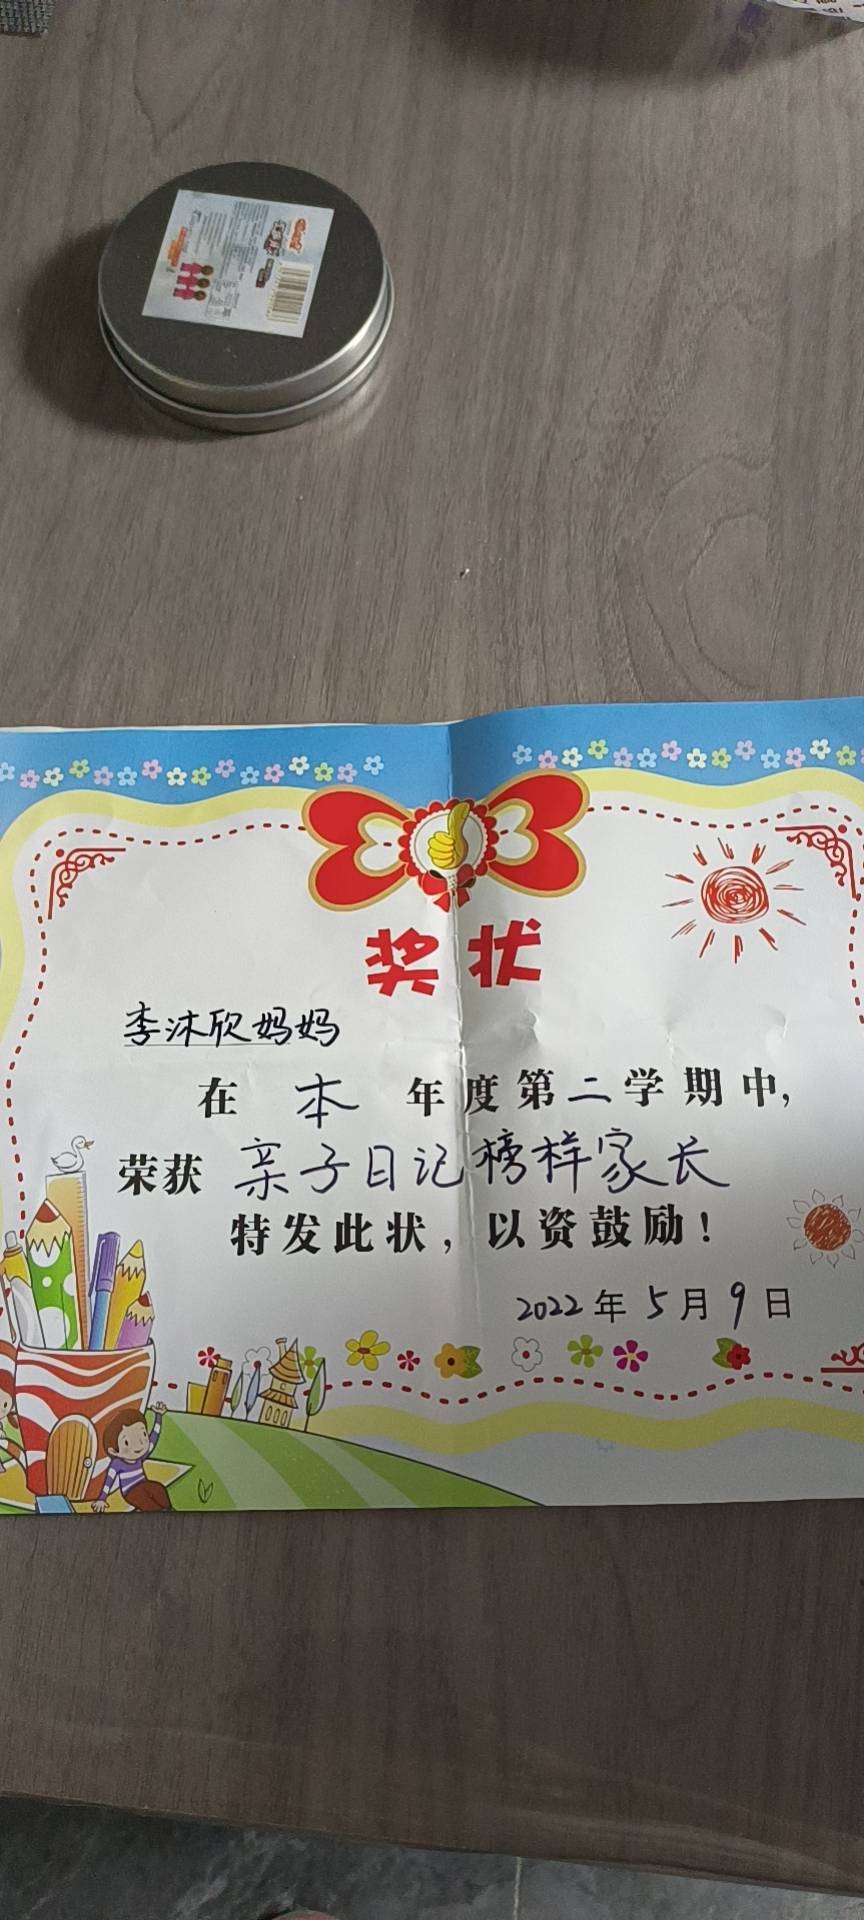 奖状
李沐欣妈妈
在 本 年度第二学期中,
荣获 亲子日记榜样家长
特发此状，以资鼓励！
2022年5月9日